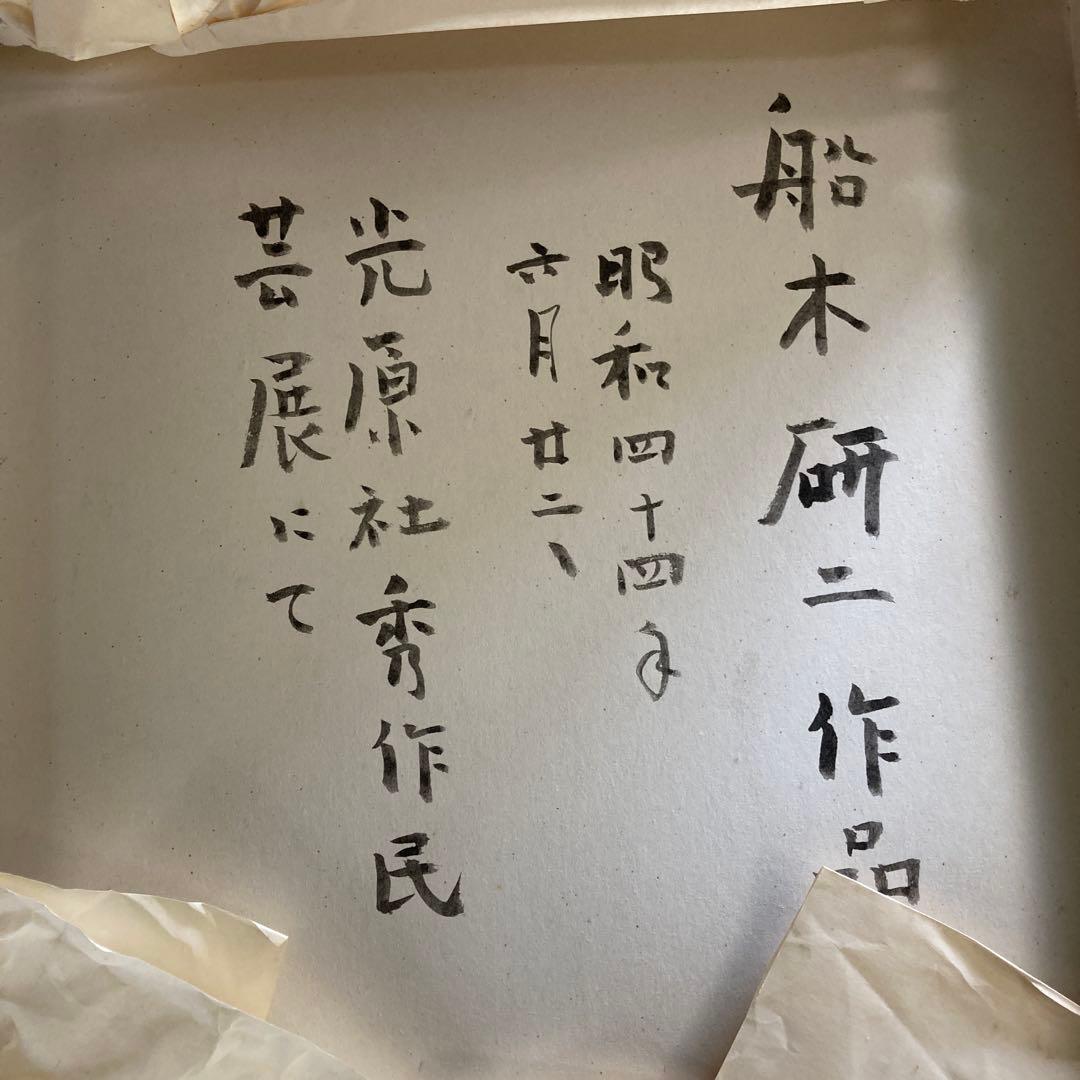 船木研二作品
昭和四十四年
六月廿二、
光原社秀作民
芸展にて